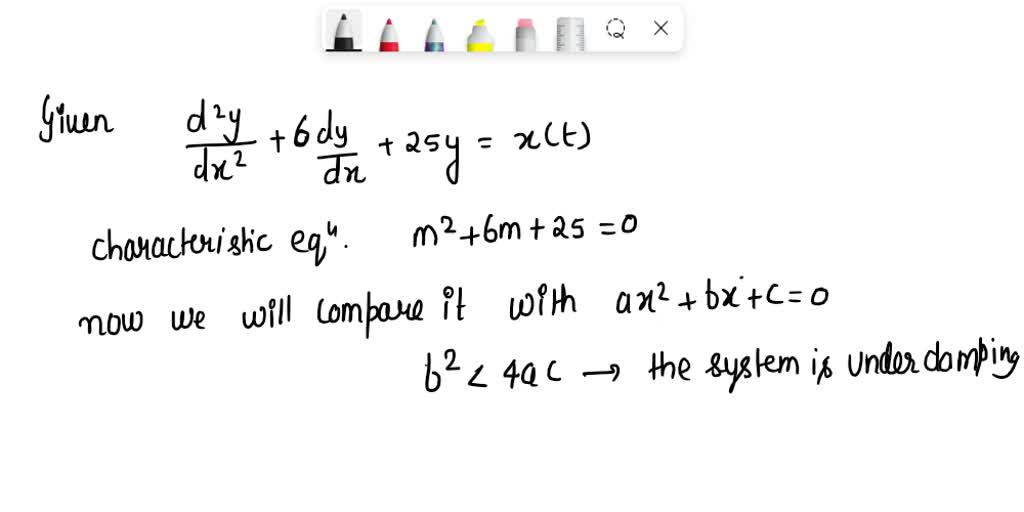 Given d²y/dx² + 6 dy/dx + 25y = x(t)
characteristic eqⁿ. m² + 6m + 25 = 0
now we will compare it with ax² + bx + c = 0
b² < 4ac → the system is underdamping